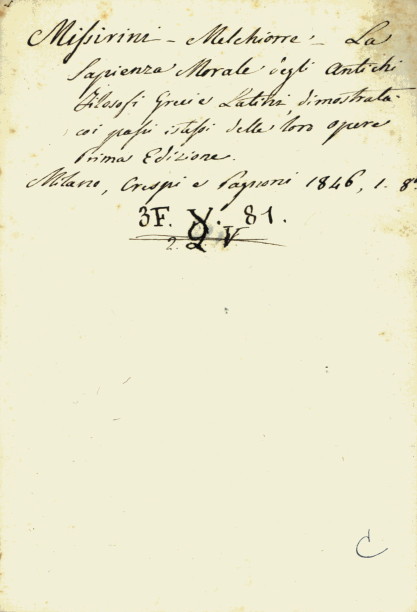 Missirini - Melchiorre - La
Sapienza Morale degli Antichi
Filosofi Greci e Latini, dimostrata
coi passi istessi delle loro opere
Prima Edizione.
Milano, Crespi e Pagnoni 1846, 1. 8°
3F. V. 81.
2. Q. V
C